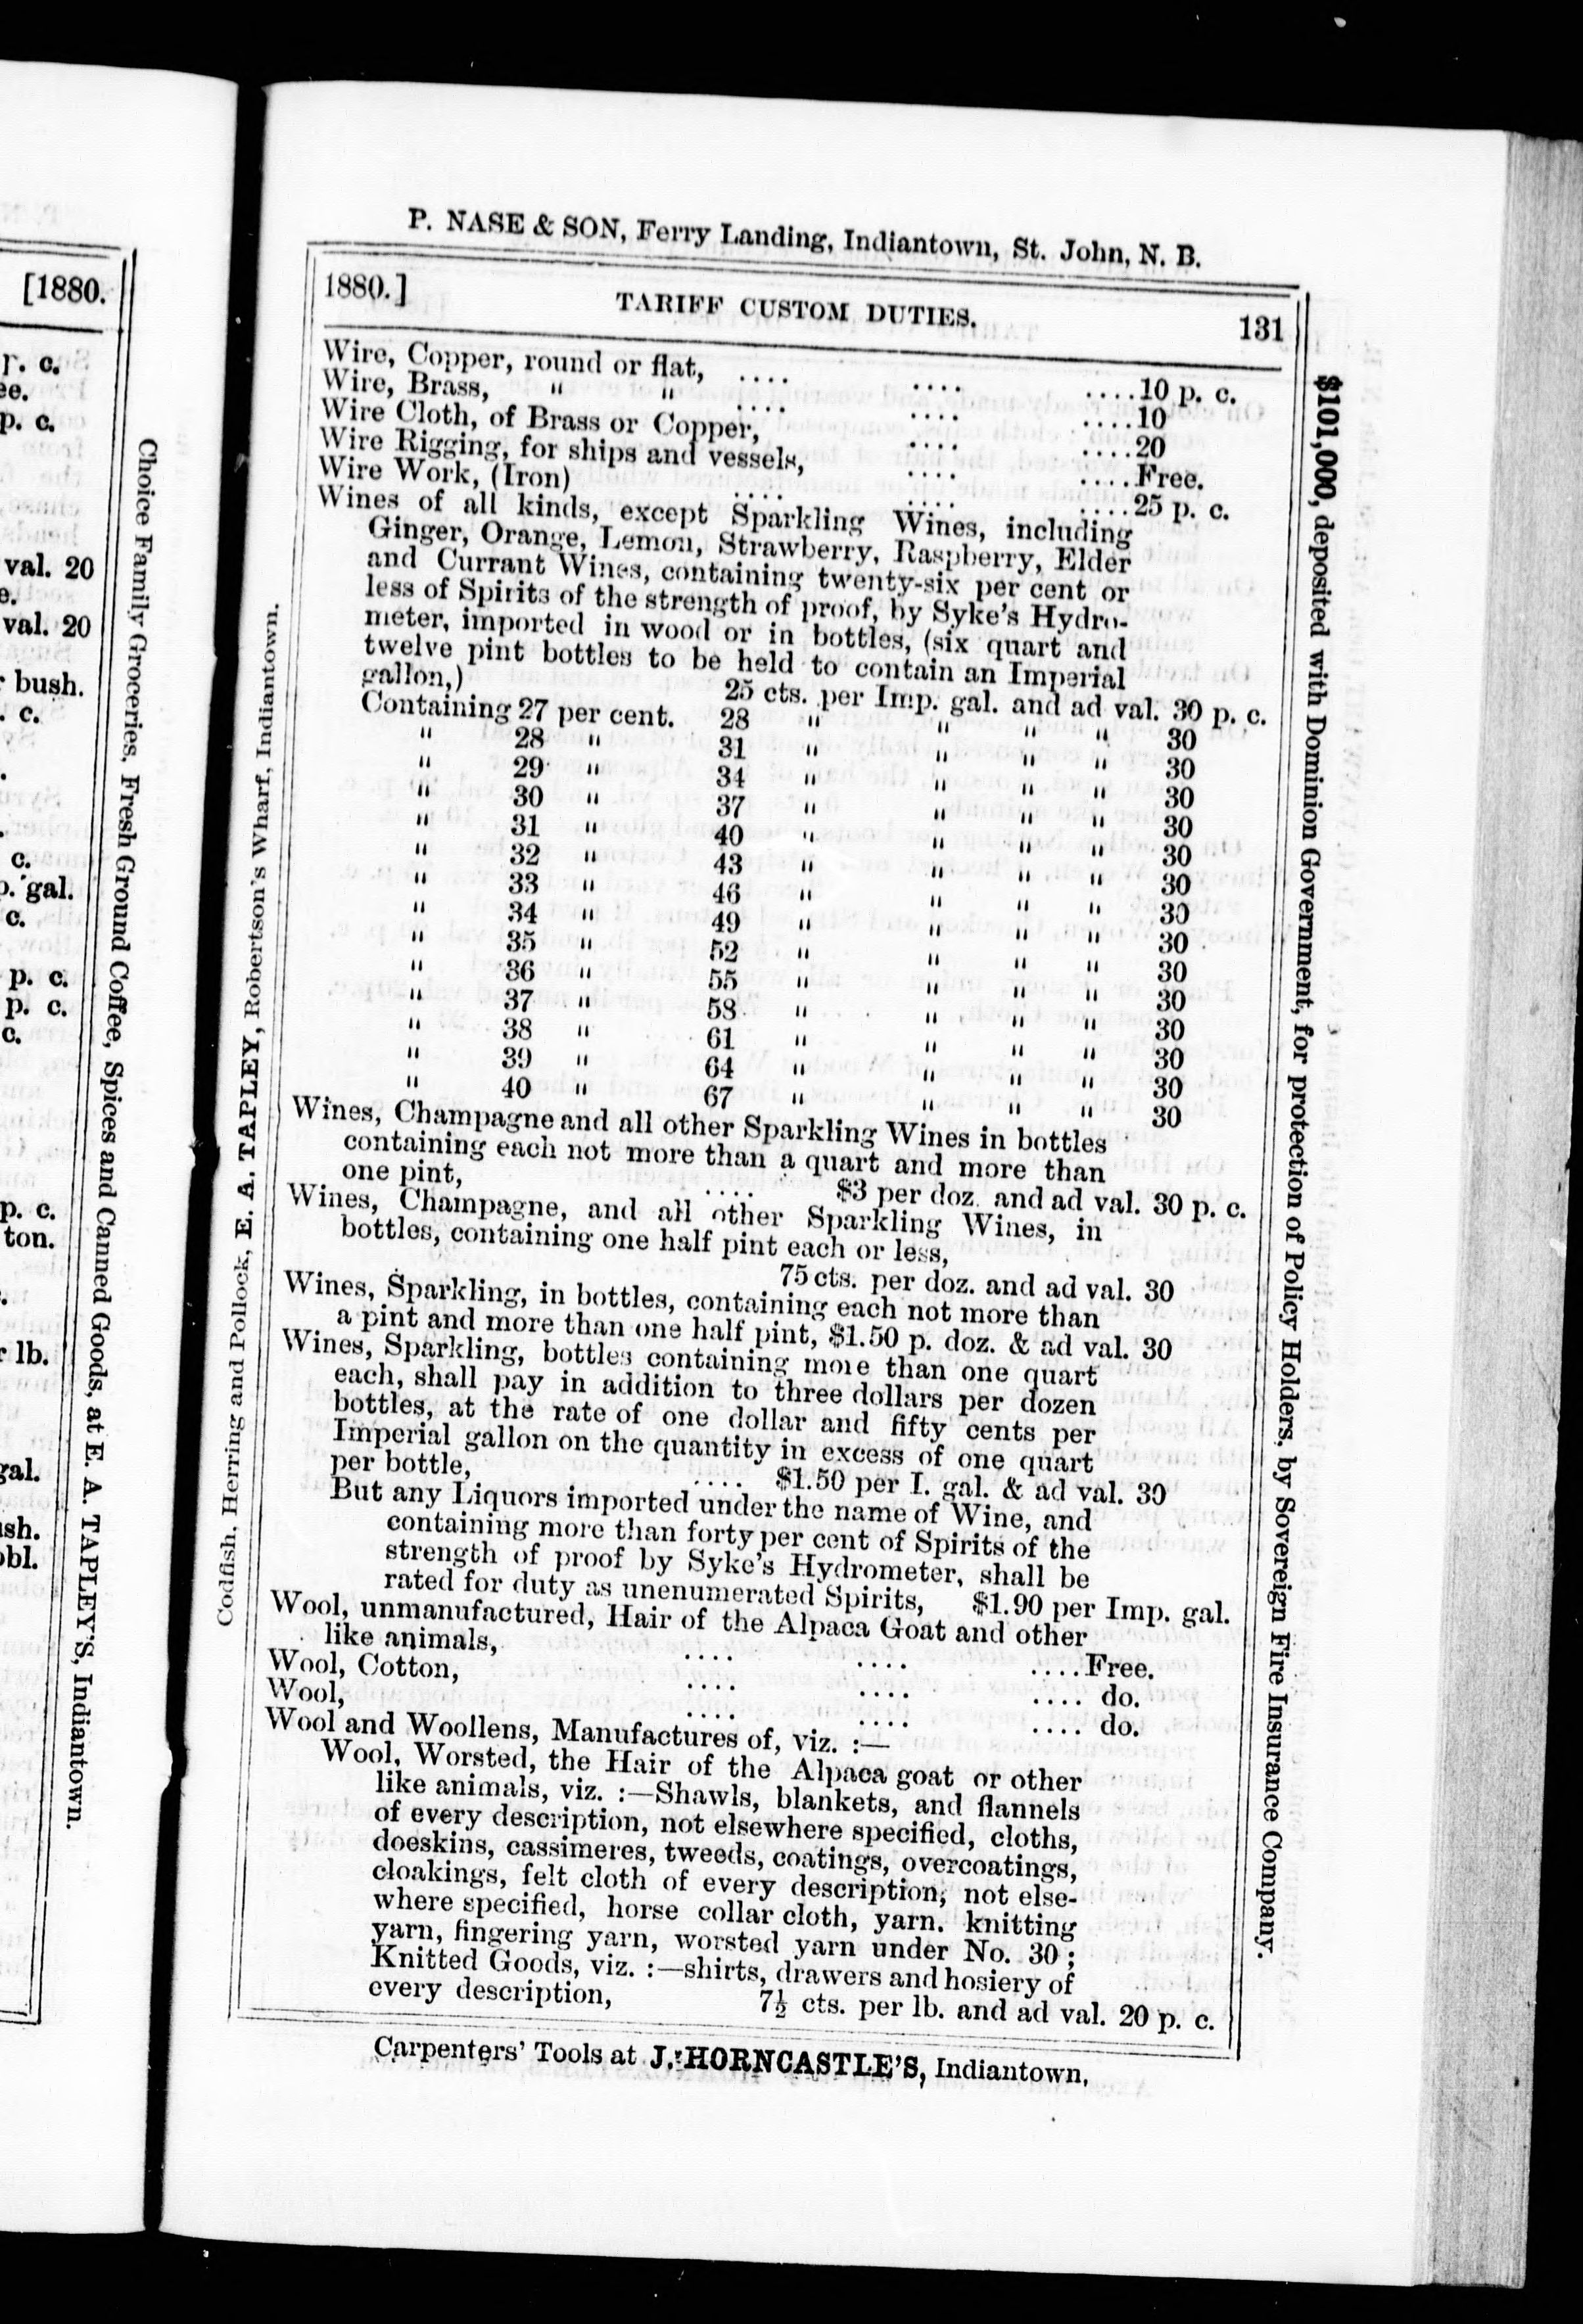 [1880.
r. c.
ee.
p. c.
val. 20
e.
val. 20
bush.
. c.
c.
p. gal.
c.
p. c.
p. c.
c.
p. c.
ton.
lb.
gal.
ush.
bbl.
Choice Family Groceries, Fresh Ground Coffee, Spices and Canned Goods, at E. A. TAPLEY'S, Indiantown.
Codfish, Herring and Pollock, E. A. TAPLEY, Robertson's Wharf, Indiantown.
P. NASE & SON, Ferry Landing, Indiantown, St. John, N. B.
1880.] TARIFF CUSTOM DUTIES. 131
Wire, Copper, round or flat, .... .... ....10 p. c.
Wire, Brass, " " .... .... ....10
Wire Cloth, of Brass or Copper, .... ....20
Wire Rigging, for ships and vessels, .... ....Free.
Wire Work, (Iron) .... .... ....25 p. c.
Wines of all kinds, except Sparkling Wines, including
Ginger, Orange, Lemon, Strawberry, Raspberry, Elder
and Currant Wines, containing twenty-six per cent or
less of Spirits of the strength of proof, by Syke's Hydro-
meter, imported in wood or in bottles, (six quart and
twelve pint bottles to be held to contain an Imperial
gallon,) 25 cts. per Imp. gal. and ad val. 30 p. c.
Containing 27 per cent. 28 " " " " 30
" 28 " 31 " " " " 30
" 29 " 34 " " " " 30
" 30 " 37 " " " " 30
" 31 " 40 " " " " 30
" 32 " 43 " " " " 30
" 33 " 46 " " " " 30
" 34 " 49 " " " " 30
" 35 " 52 " " " " 30
" 36 " 55 " " " " 30
" 37 " 58 " " " " 30
" 38 " 61 " " " " 30
" 39 " 64 " " " " 30
" 40 " 67 " " " " 30
Wines, Champagne and all other Sparkling Wines in bottles
containing each not more than a quart and more than
one pint, .... $3 per doz. and ad val. 30 p. c.
Wines, Champagne, and all other Sparkling Wines, in
bottles, containing one half pint each or less,
75 cts. per doz. and ad val. 30
Wines, Sparkling, in bottles, containing each not more than
a pint and more than one half pint, $1.50 p. doz. & ad val. 30
Wines, Sparkling, bottles containing more than one quart
each, shall pay in addition to three dollars per dozen
bottles, at the rate of one dollar and fifty cents per
Imperial gallon on the quantity in excess of one quart
per bottle, .... $1.50 per I. gal. & ad val. 30
But any Liquors imported under the name of Wine, and
containing more than forty per cent of Spirits of the
strength of proof by Syke's Hydrometer, shall be
rated for duty as unenumerated Spirits, $1.90 per Imp. gal.
Wool, unmanufactured, Hair of the Alpaca Goat and other
like animals, .... .... ....Free.
Wool, Cotton, .... .... .... do.
Wool, .... .... .... do.
Wool and Woollens, Manufactures of, viz. :—
Wool, Worsted, the Hair of the Alpaca goat or other
like animals, viz. :—Shawls, blankets, and flannels
of every description, not elsewhere specified, cloths,
doeskins, cassimeres, tweeds, coatings, overcoatings,
cloakings, felt cloth of every description, not else-
where specified, horse collar cloth, yarn. knitting
yarn, fingering yarn, worsted yarn under No. 30 ;
Knitted Goods, viz. :—shirts, drawers and hosiery of
every description, 7½ cts. per lb. and ad val. 20 p. c.
$101,000, deposited with Dominion Government, for protection of Policy Holders, by Sovereign Fire Insurance Company.
Carpenters' Tools at J. HORNCASTLE'S, Indiantown.